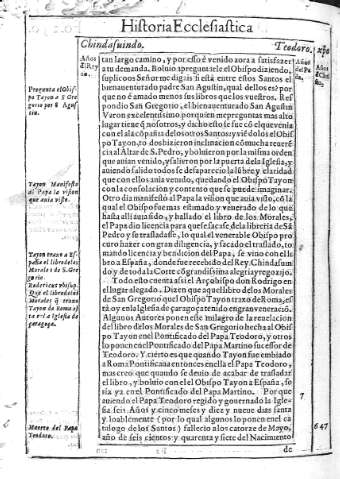 Historia Ecclesiastica
Chindasuindo.
Teodoro.
Años
del Rey
tan largo camino, y por esso è venido aora a satisfazer
a tu demanda. Boluio a preguntarle el Obispo diziendo,
suplico os Señor me digais si està entre estos Santos el
bienauenturado padre San Agustin, qual dellos es? por
que no è amado menos sus libros que los vuestros. Res
pondio San Gregorio, el bienauenturado San Agustin
Varon excelentissimo por quien me preguntas mas alto
lugar tiene q̃ nosotros, y dicho esto
Tayon, to dos hizieron inclinacion
cia al Altar de S. Pedro, y boluieron por la misma orden
que auian venido, y salieron por la puerta dela Iglesia, y
auiendo salido todos se desaparecio la lūbre y claridad
que con ellos auia venido, quedando el Obispo Tayon
con la consolacion y contento que se puede imaginar.
Otro dia manifestò al Papa la visiõ que auia visto, cõ la
qual el Obispo fue mas estimado y venerado de lo que
hasta alli auia sido, y hallado el libro de los Morales,
el Papa dio licencia para que se sacasse de la libreria de Sã
Pedro y se trasladasse, lo qual el venerable Obispo pro
curo hazer con gran diligencia, y sacado el traslado, to
mando licencia y bendicion del Papa, se vino con el li-
bro a España, donde fue recebido del Rey Chindasuin
do y de toda la Corte cõ grandissima alegria y regozijo.
Todo esto cuenta assi el Arçobispo don Rodrigo en
el lugar alegado. Dizen que aquel libro de los Morales
de San Gregorio que el Obispo Tayon traxo de Roma, es
tà oy en la Iglesia de çaragoça tenido en gran veneraciõ.
Algunos Autores ponen este milagro de la reuelacion
del libro de los Morales de San Gregorio hecha al Obis
po Tayon en el Pontificado del Papa Teodoro, y otros
lo ponen en el Pontificado del Papa Martino sucessor de
Teodoro. Y cierto es que quando Tayon fue embiado
a Roma Pontificaua entonces en ella el Papa Teodoro,
mas creo que quando se deuio de acabar de trasladar
el libro, y boluio con el el Obispo Tayon a España, se
ria ya en el Pontificado del Papa Martino. Por que
auiendo el Papa Teodoro regido y gouernado la Igle-
sia seis Años y cinco meses y diez y nueue dias santa
y loablemente (por lo qual algunos lo ponen en el ca
talogo de los Santos) fallecio a los catorze de Mayo,
año de seis cientos y quarenta y siete del Nacimiento
de
Pregunta el Obis
po Tayon a S Gre
gorio por S Agus
tin.
Tayon Manifesto
al Papa la vision
que auia visto.
Tayon traxo a Es
paña el libro de los
Morales de S. Gre
gorio
Rodericus vbi sup.
Muerte del Papa
Teodoro.
7
647